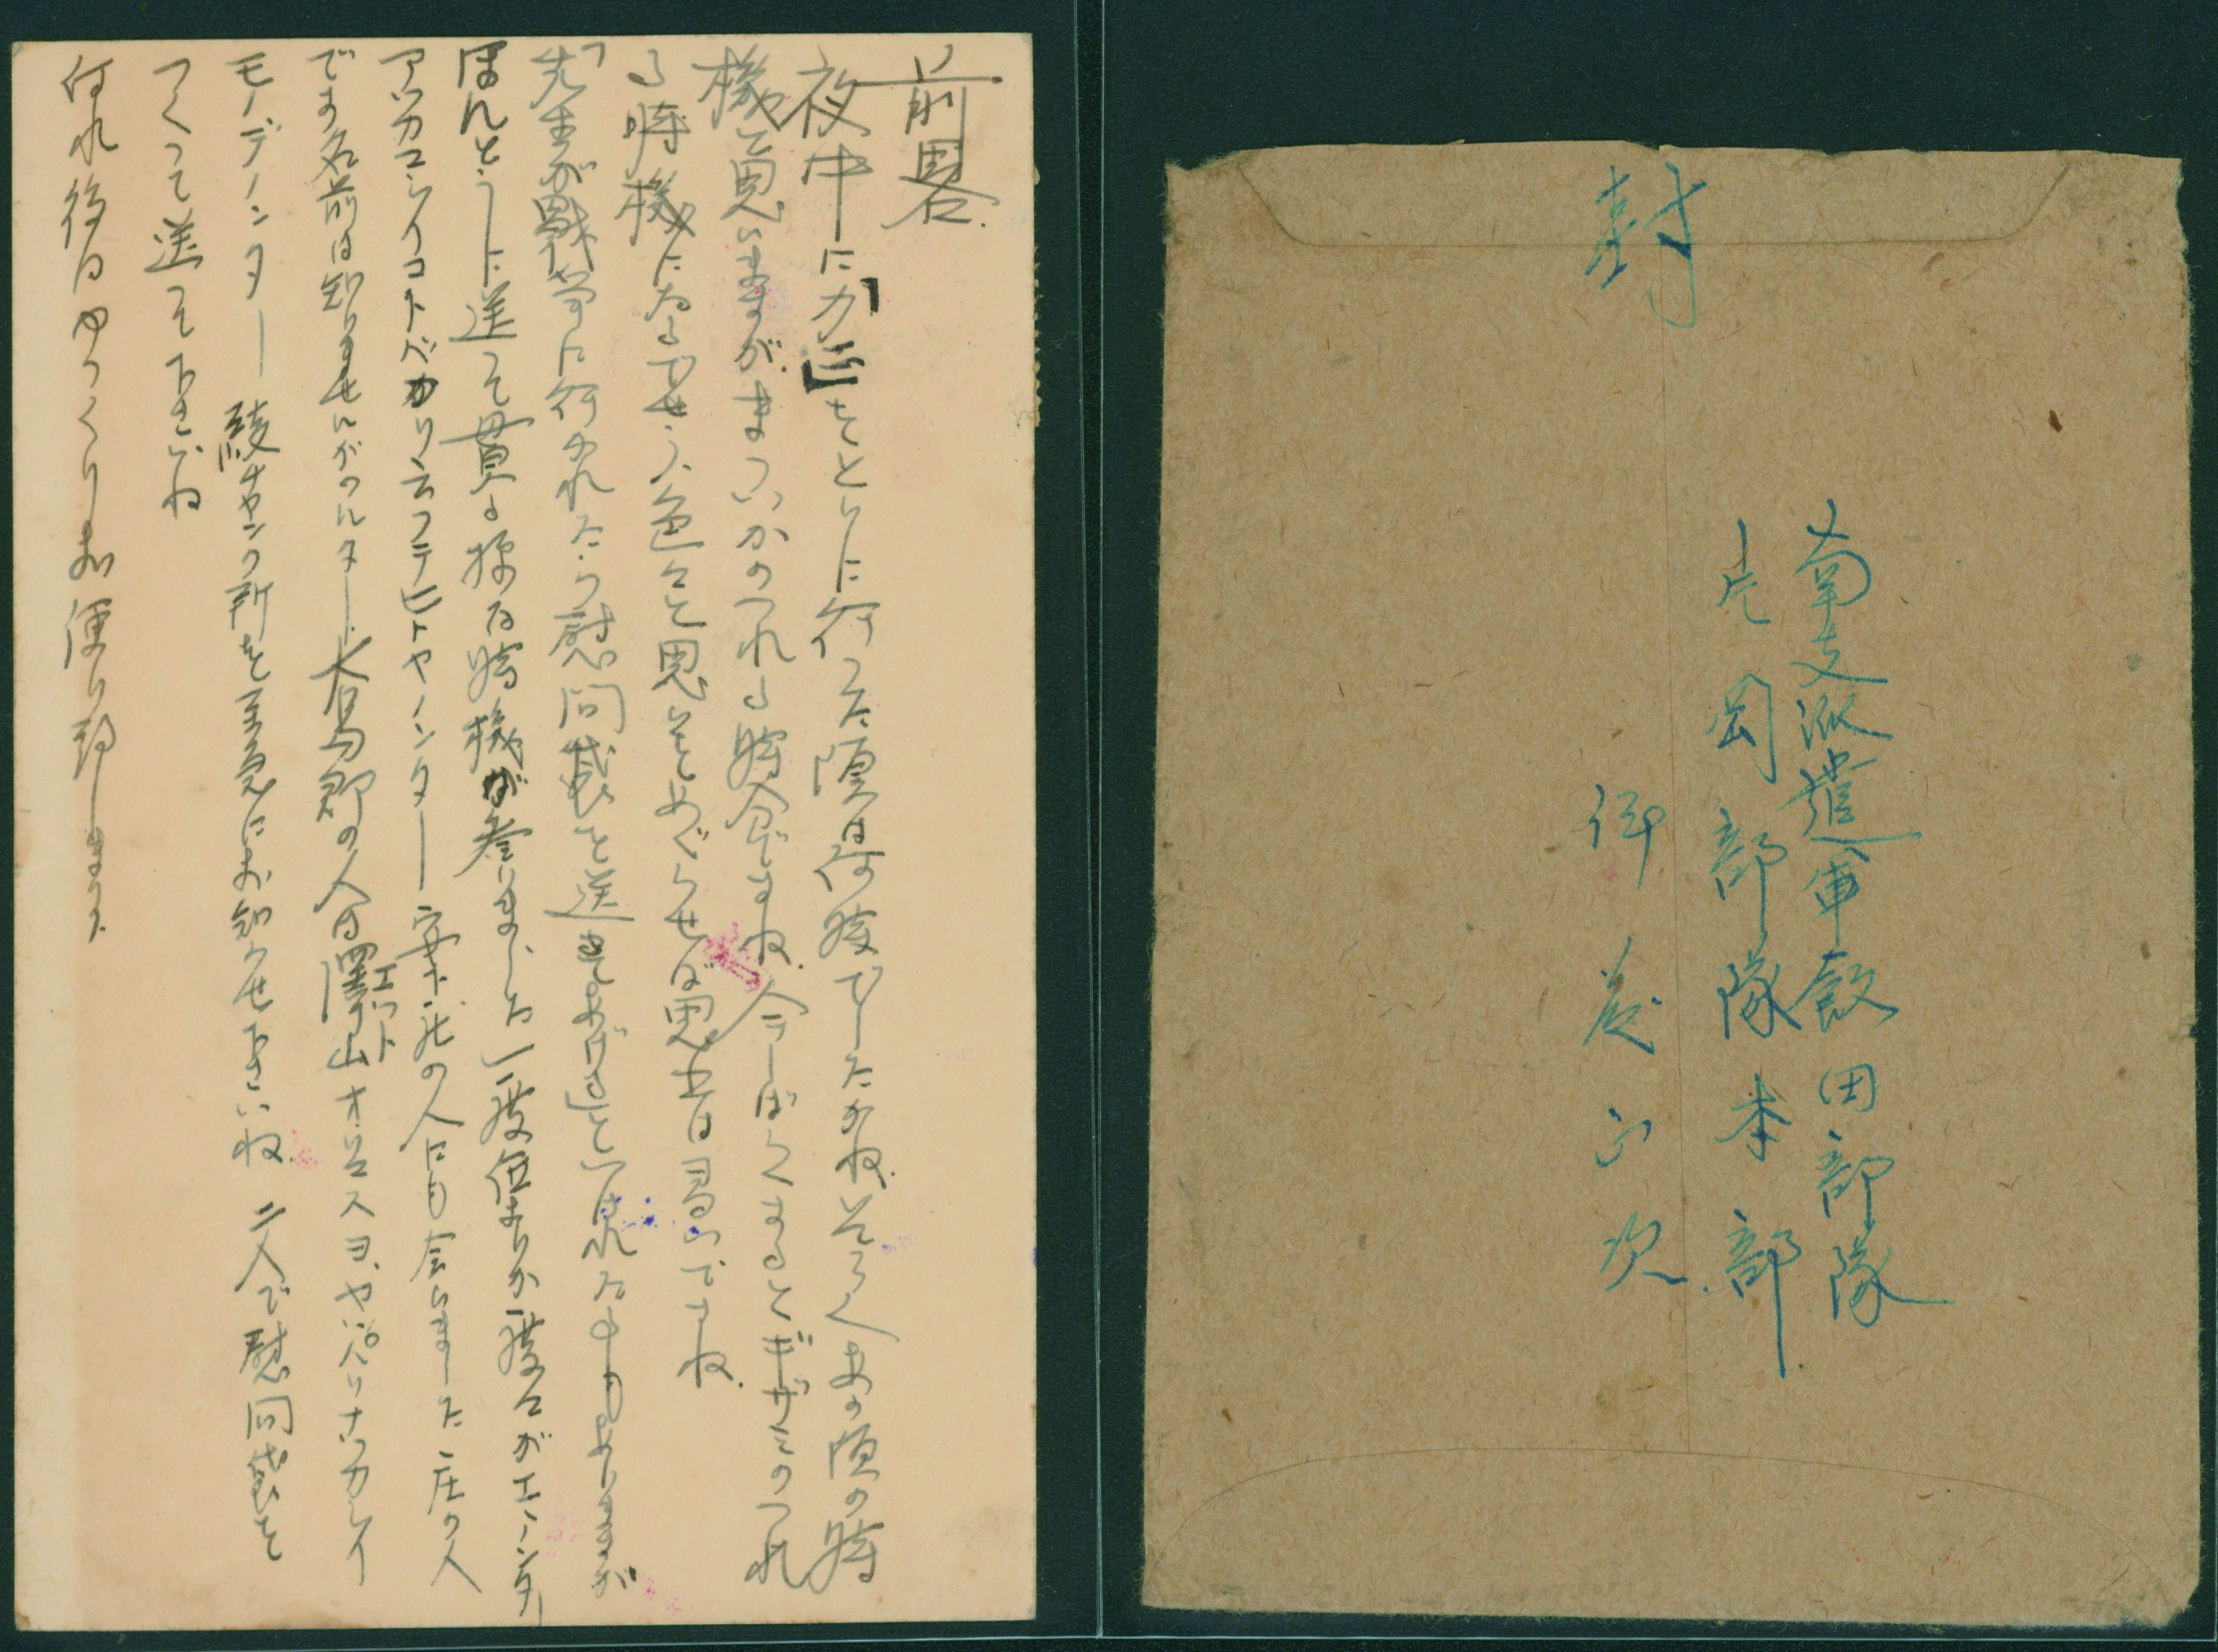 前略
夜中に「カニ」をとりに行った頃は何時でしたかね そろくあの頃の時
機と思いますが まついかのつれる時分ですね 今しばらくするとギザミのつれ
る時機になるでせう 色々と思いをめぐらせば思出は尽いですね
「先生が戦地に行かれたら慰問袋を送ってあげる」といはれた事もありますが
ほんとうに送って貰ふ様な時機が参りました
アツカマシイコトバカリ云フテヒトヤノンター 安下ノ庄の人にも会いました 庄の人
です 名前は知りませんがノルター 大島郡の人は澤山オルスヨ ヤッパリナツカシイ
エット
モノデノンター 綾チャンの所を至急にお知らせ下さいね 二人で慰問袋を
つくって送って下さいね
何れ後はゆっくりお便り致します
封
南支派遣軍飯田部隊
片岡部隊本部